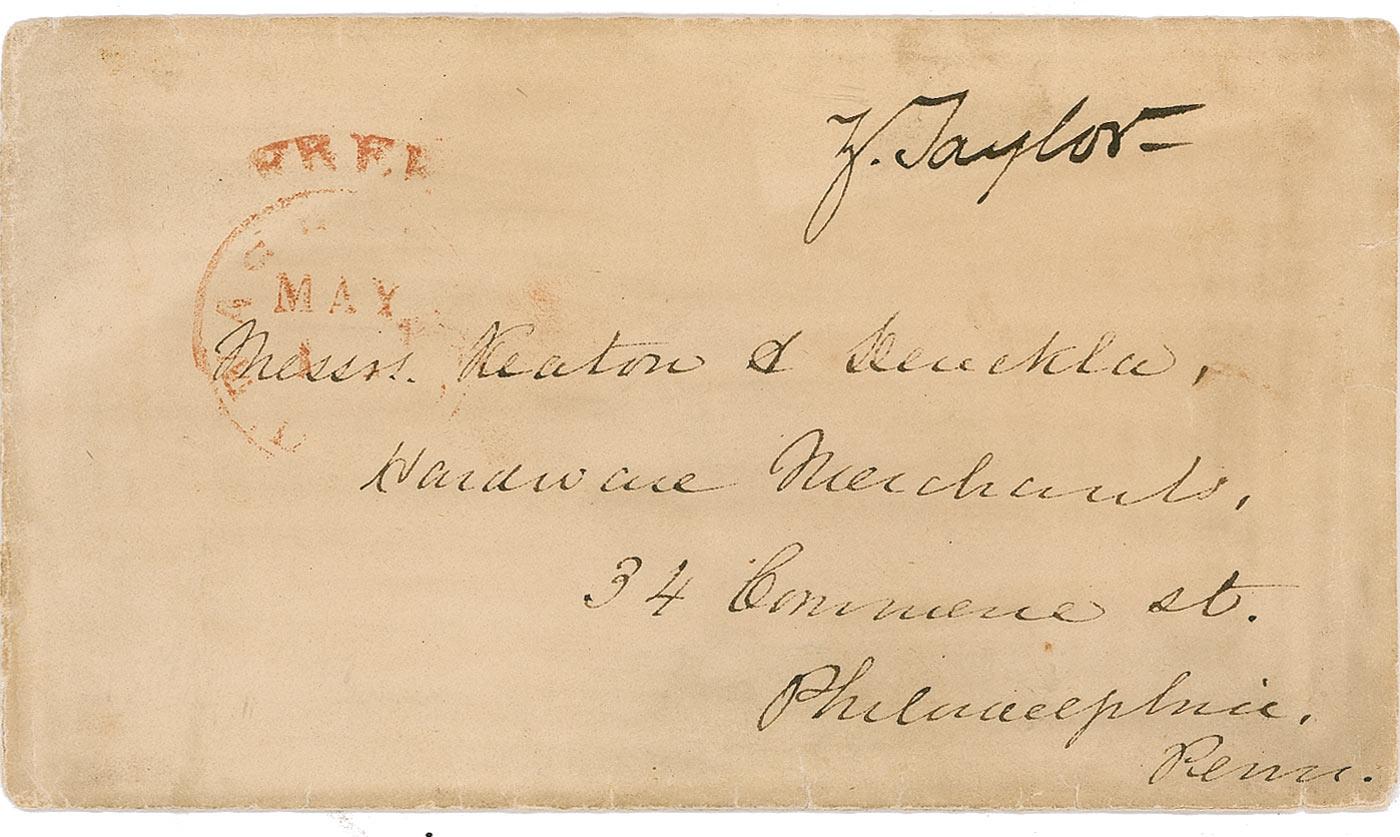 Z. Taylor
FREE
MAY
Messrs. Heaton &
Hardware Merchants,
34 Commerce st.
Philadelphia,
Penn.